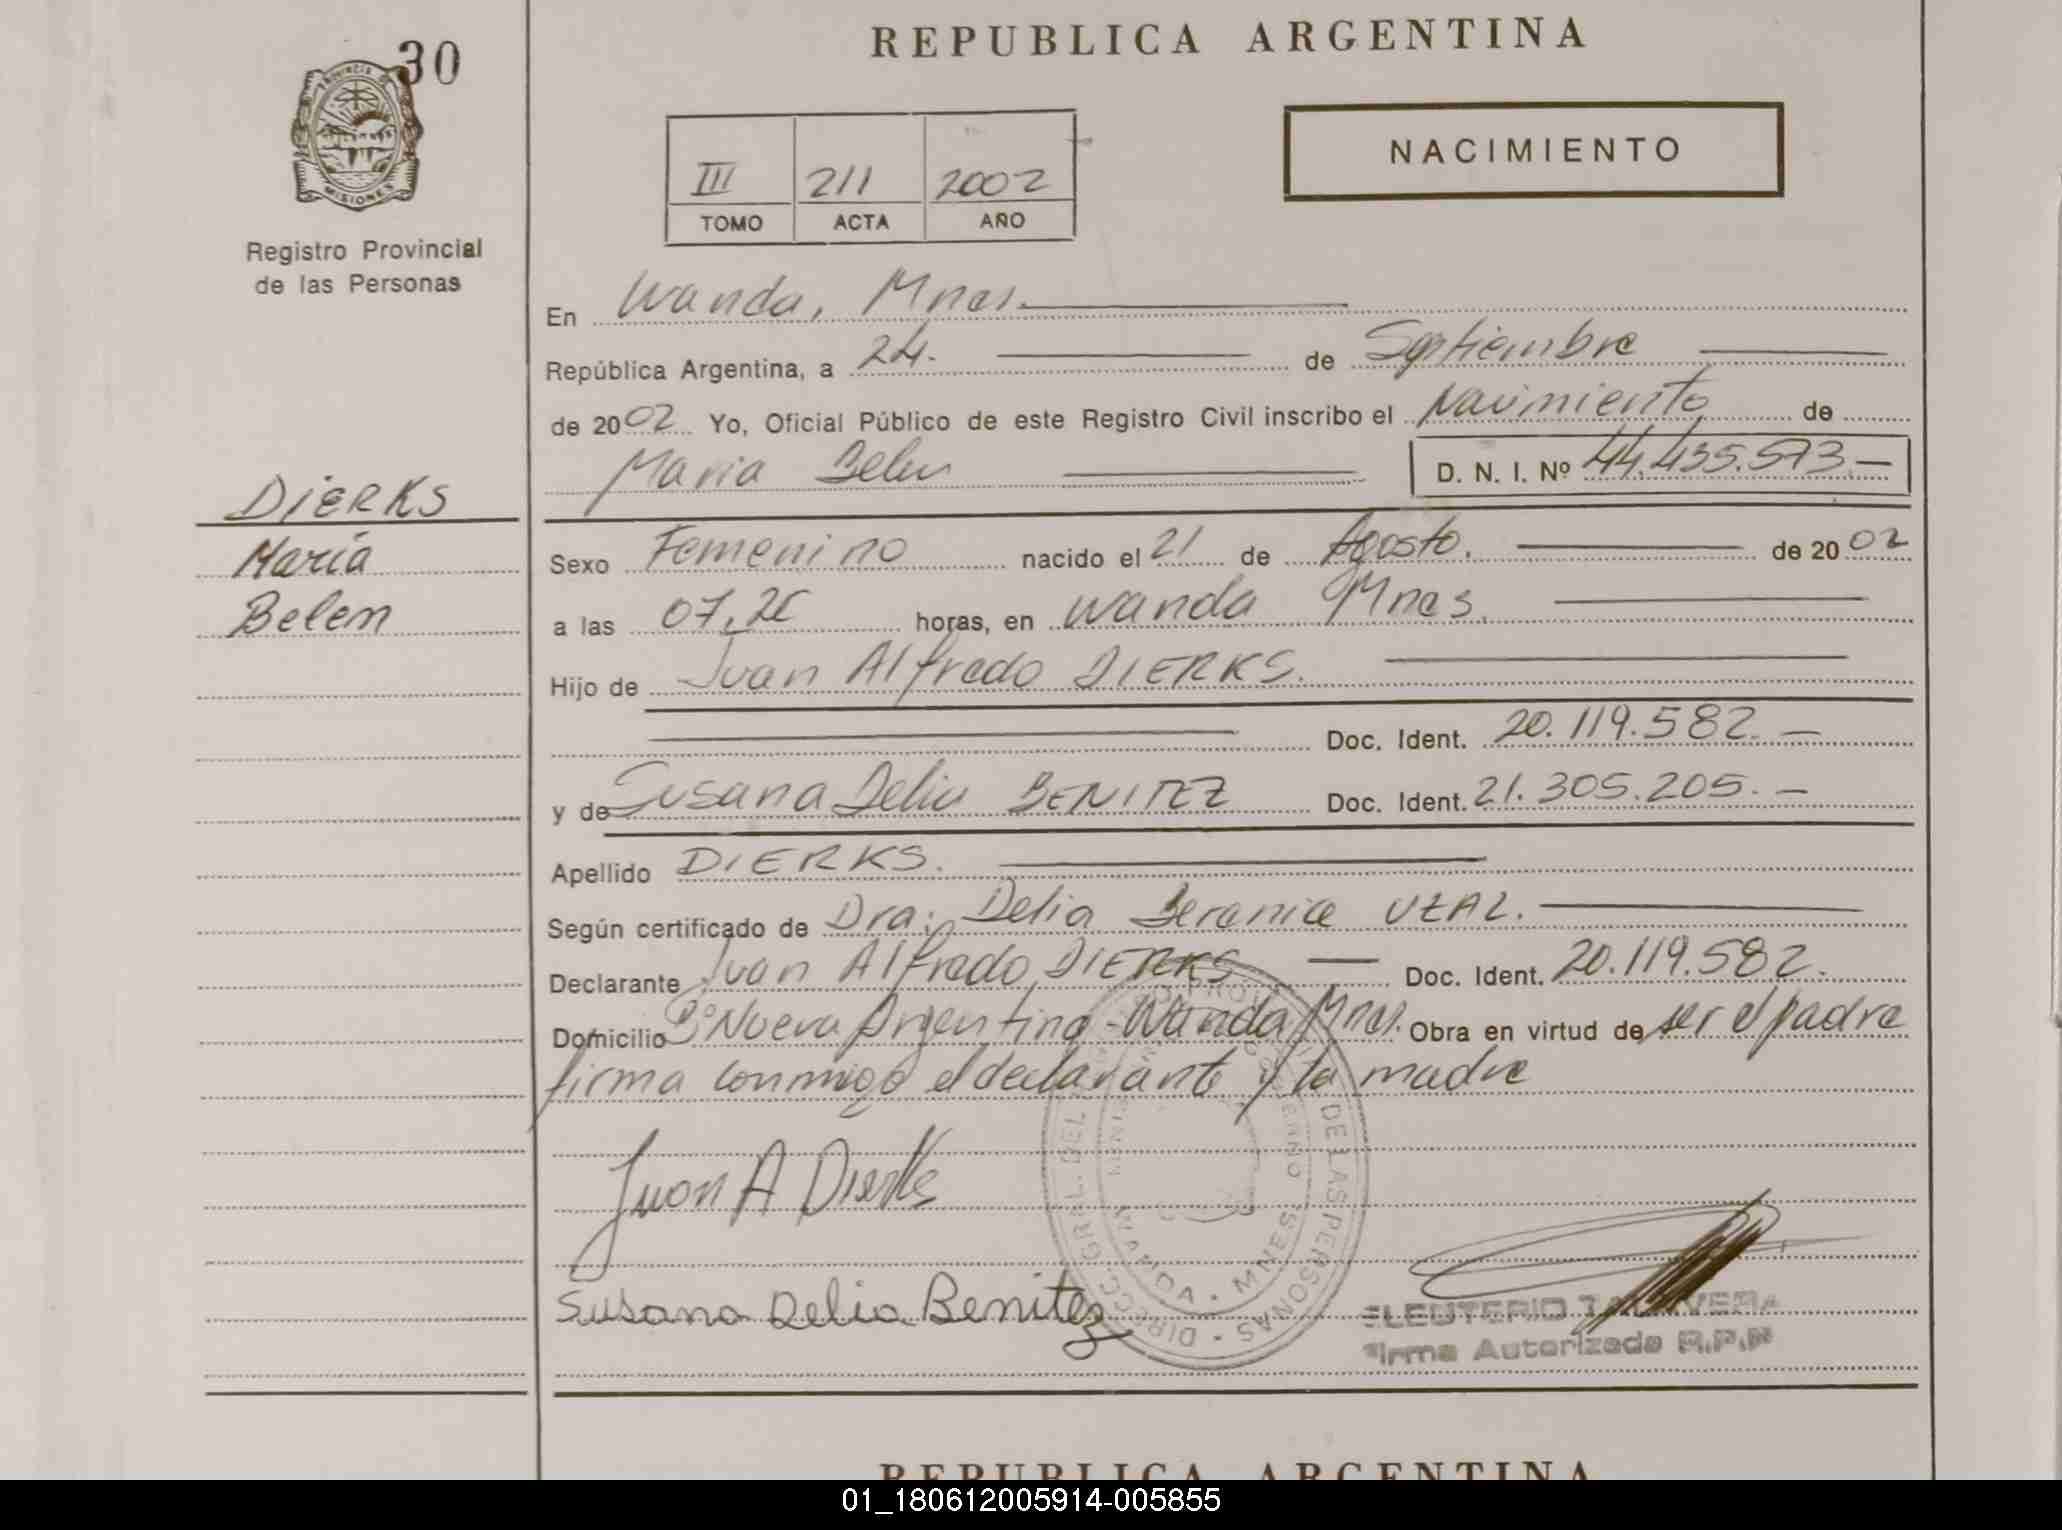 30
REPUBLICA ARGENTINA
PROVINCIA DE
MISIONES
Registro Provincial
de las Personas
III 211 2002
TOMO ACTA AÑO
NACIMIENTO
En Wanda, Mnes.
República Argentina, a 24. de Septiembre
de 2002 Yo, Oficial Público de este Registro Civil inscribo el Nacimiento de
Maria Belen D. N. I. Nº 44.435.573.—
DIERKS
María
Belen
Sexo Femenino nacido el 21 de Agosto. de 2002
a las 07, horas, en Wanda Mnes.
Hijo de Juan Alfredo DIERKS.
Doc. Ident. 20.119.582.—
y de Susana Delia BENITEZ Doc. Ident. 21.305.205.—
Apellido DIERKS.
Según certificado de Dra. Delia Beranice
Declarante Juan Alfredo DIERKS — Doc. Ident. 20.119.582.
Domicilio Bº Nueva Argentina - Wanda Mnes. Obra en virtud de ser el padre
firma conmigo el declarante y la madre
Juan A Dierks
Susana Delia Benitez
DIRECC. GRAL. DEL DE LAS PERSONAS
WANDA - MNES
ELEUTERIO TALAVERA
Firma Autorizada R.P.P
REPUBLICA ARGENTINA
01_180612005914-005855